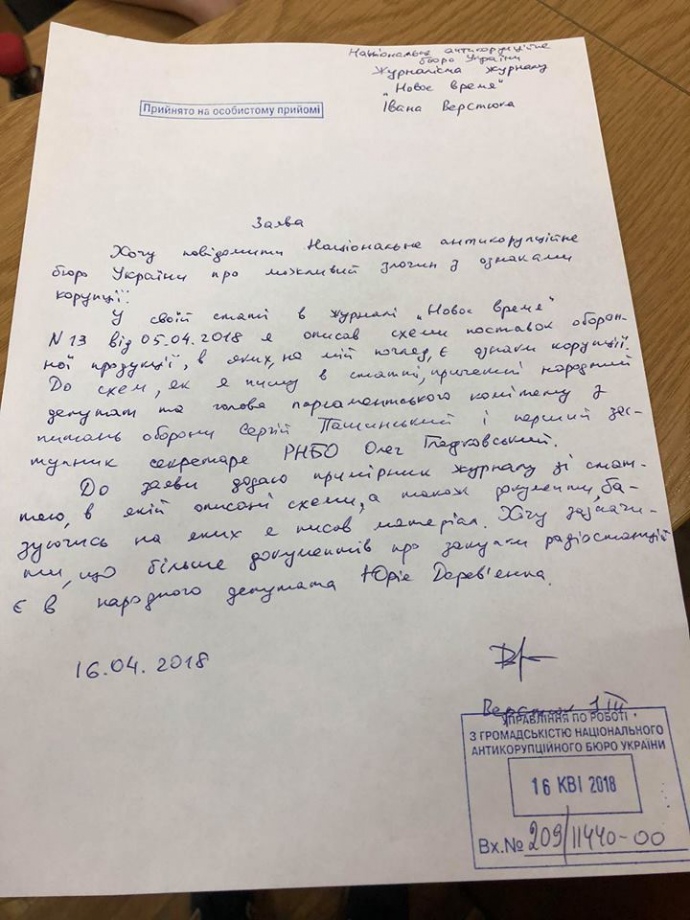 Національне антикорупційне
бюро України
Журналіста журналу
„Новое время"
Івана Верстюка
Прийнято на особистому прийомі
Заява
Хочу повідомити Національне антикорупційне
бюро України про можливий злочин з ознаками
корупції.
У своїй статті в журналі „Новое время"
N 13 від 05.04.2018 я описав схеми поставок оборон-
ної продукції, в яких, на мій погляд, є ознаки корупції.
До схем, як я пишу в статті, причетні народний
депутат та голова парламентського комітету з
питань оборони Сергій Пашинський і перший зас-
тупник секретаря РНБО Олег Гладковський.
До заяви додаю примірник журналу зі стат-
тею, в якій описані схеми, а також документи, ба-
зуючись на яких я писав матеріал. Хочу зазначи-
ти, що більше документів про закупки радіостанцій
є в народного депутата Юрія Дерев'янка.
16.04.2018
Верстюк І.
УПРАВЛІННЯ ПО РОБОТІ
З ГРОМАДСЬКІСТЮ НАЦІОНАЛЬНОГО
АНТИКОРУПЦІЙНОГО БЮРО УКРАЇНИ
16 КВІ 2018
Вх.№ 209/11440-00